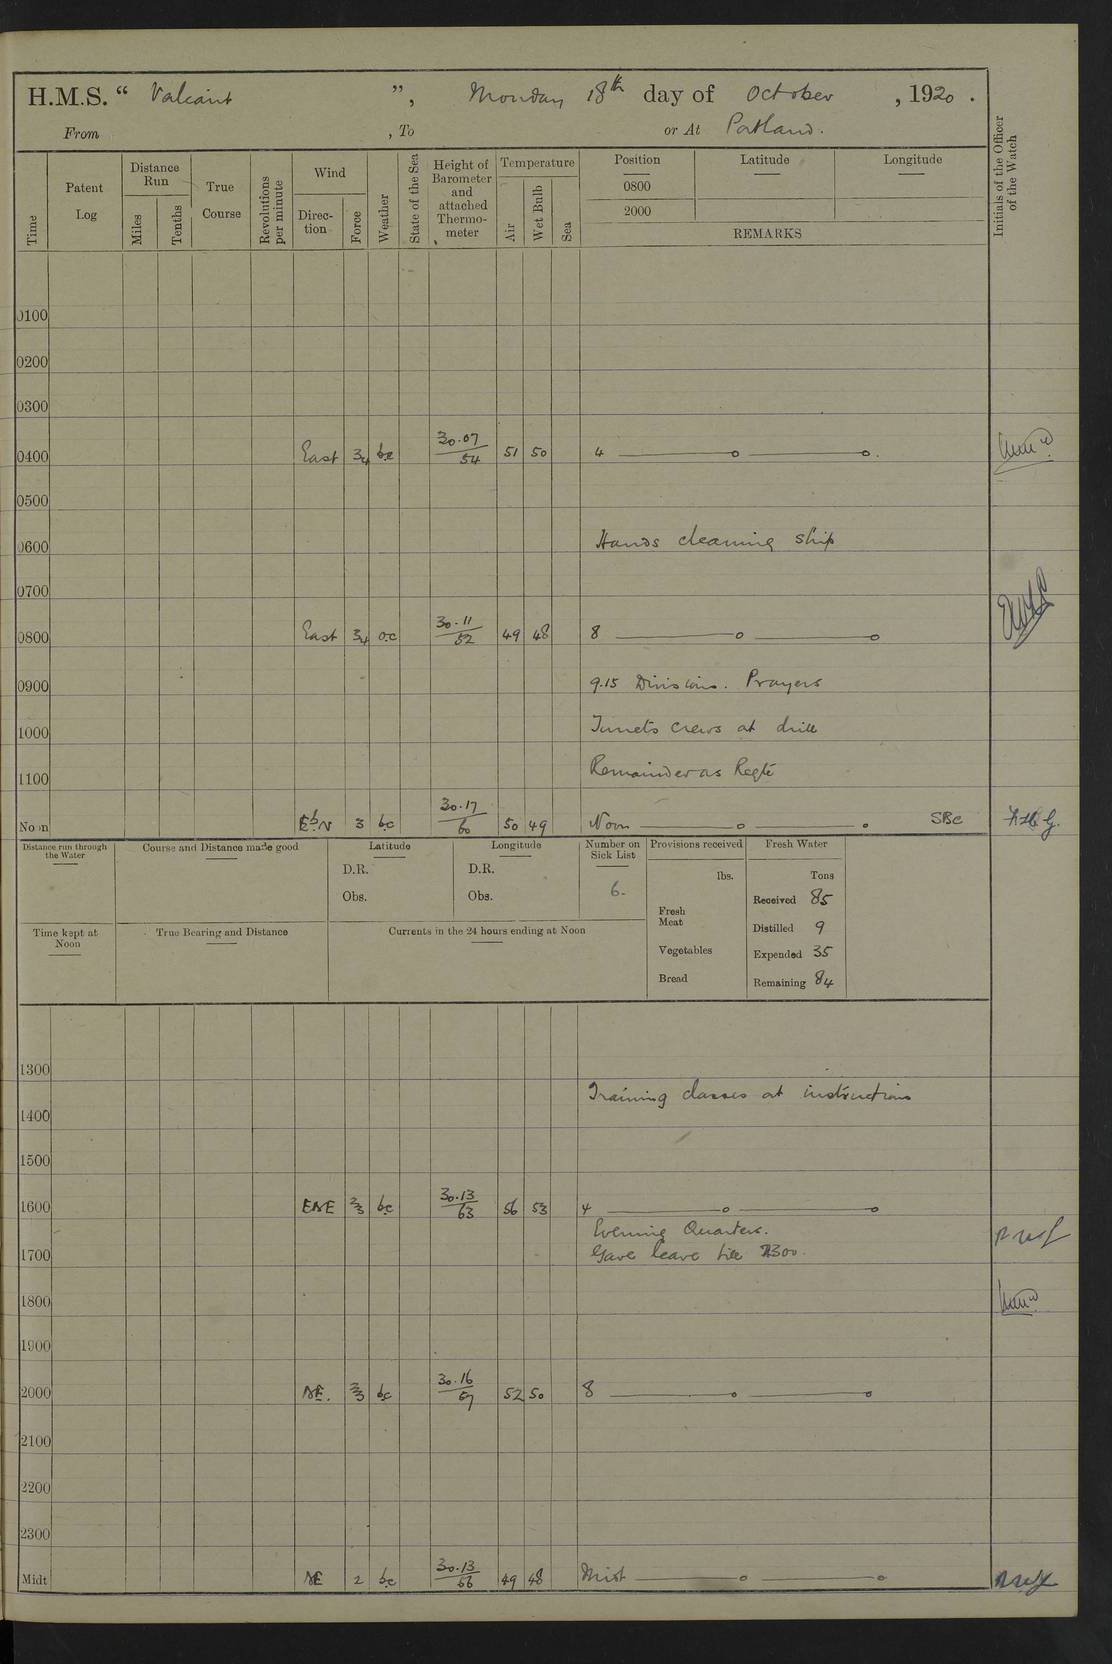 H.M.S. “ Valiant ”, Monday 18th day of October , 1920 .
From , To or At Portland.
Time
Patent Log
Distance Run
Miles
Tenths
True Course
Revolutions per minute
Wind
Direc-tion
Force
Weather
State of the Sea
Height of Barometer and attached Thermo-meter
Temperature
Air
Wet Bulb
Sea
Position
0800
2000
Latitude
Longitude
REMARKS
Initials of the Officer of the Watch
0100
0200
0300
0400 East 3/4 bc 30.07/54 51 50 4
0500
0600 Hands cleaning ship
0700
0800 East 3/4 oc 30.11/52 49 48 8
0900 9.15 Divisions. Prayers
1000 Turrets crews at drill
1100 Remainder as Reqte
Noon EbN 3 bc 30.17/60 50 49 Noon SBC
Distance run through the Water
Course and Distance made good
Latitude
D.R.
Obs.
Longitude
D.R.
Obs.
Number on Sick List
6.
Provisions received
lbs.
Fresh Meat
Vegetables
Bread
Fresh Water
Tons
Received 85
Distilled 9
Expended 35
Remaining 84
Time kept at Noon
True Bearing and Distance
Currents in the 24 hours ending at Noon
1300
Training classes at instructions
1400
1500
1600 ENE 2/3 bc 30.13/63 56 53 4
Evening Quarters.
1700 Gave leave till 2300.
1800
1900
2000 NE. 2/3 bc 30.16/57 52 50 8
2100
2200
2300
Midt NE 2 bc 30.13/56 49 48 Midt